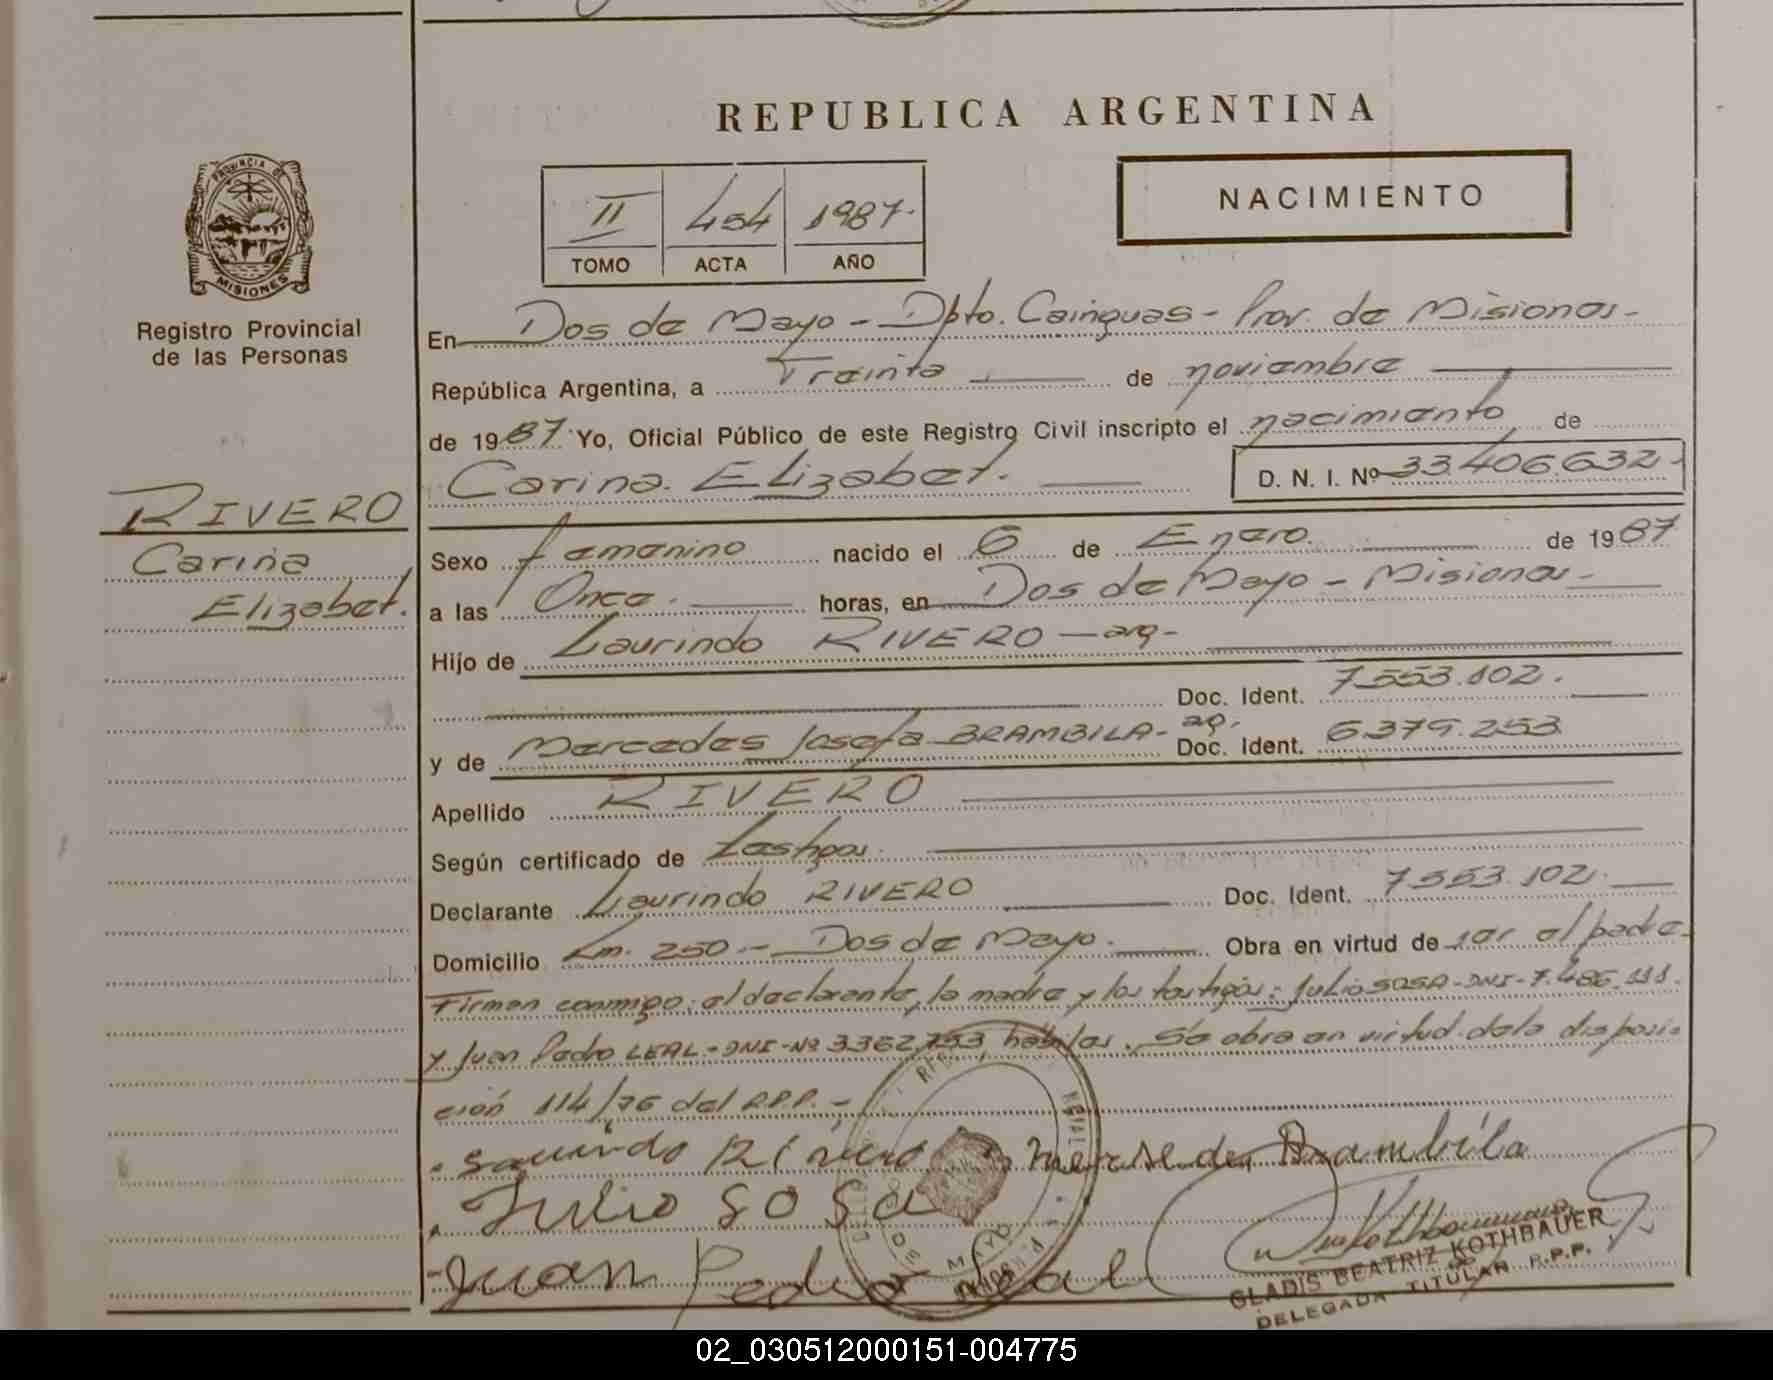 REPUBLICA ARGENTINA
PROVINCIA DE
MISIONES
Registro Provincial
de las Personas
II 454 1987.
TOMO ACTA AÑO
NACIMIENTO
En Dos de Mayo - Dpto. Cainguas - Prov. de Misiones -
República Argentina, a Treinta de noviembre
de 1987 Yo, Oficial Público de este Registro Civil inscripto el nacimiento de
Carina Elizabet. D. N. I. Nº 33.406.632.
RIVERO
Carina
Elizabet.
Sexo femenino nacido el 6 de Enero. de 1987
a las Once. horas, en Dos de Mayo - Misiones -
Hijo de Laurindo RIVERO - arg -
Doc. Ident. 7553.102.
y de Mercedes Josefa BRAMBILA - ag. Doc. Ident. 6.379.253
Apellido RIVERO
Según certificado de Testigos.
Declarante Laurindo RIVERO Doc. Ident. 7.553.102.
Domicilio Km. 250 - Dos de Mayo. Obra en virtud de ser el padre -
Firman conmigo: el declarante, la madre y los testigos: Julio SOSA - DNI - 7.486.111.
y Juan Pedro LEAL - DNI - Nº 3362.753, hábiles. Se obra en virtud de la disposi-
ción 114/76 del R.P.P. -
Rivero Mersedes Brambila
Julio SOSA
Juan Pedro Leal
GLADIS BEATRIZ KOTHBAUER
DELEGADA TITULAR R.P.P.
02_030512000151-004775